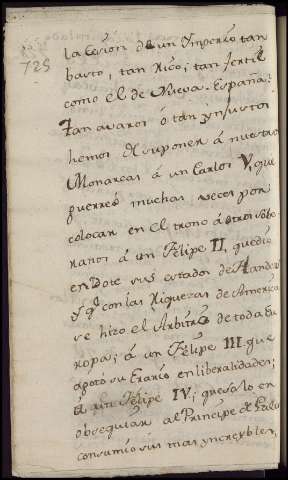 725
la Cesion de un Imperio tan
basto, tan Rico, tan fertil
como el de Nueva-España?
Tan avaros ó tan ynjustos
hemos de suponer á nuestros
Monarcas á un Carlos V, que
guerreó muchas veces por
colocar en el trono á otros sobe
ranos á un Felipe II, que dio
en Dote sus estados de Flandes
y qe con las Riquezas de America
se hizo el Arbitro de toda Eu
ropa; á un Felipe III que
apotó su Erario en liberalidades;
á un Felipe IV, que solo en
obsequiar al Principe de Gales
consumió sus mas yncreybles,